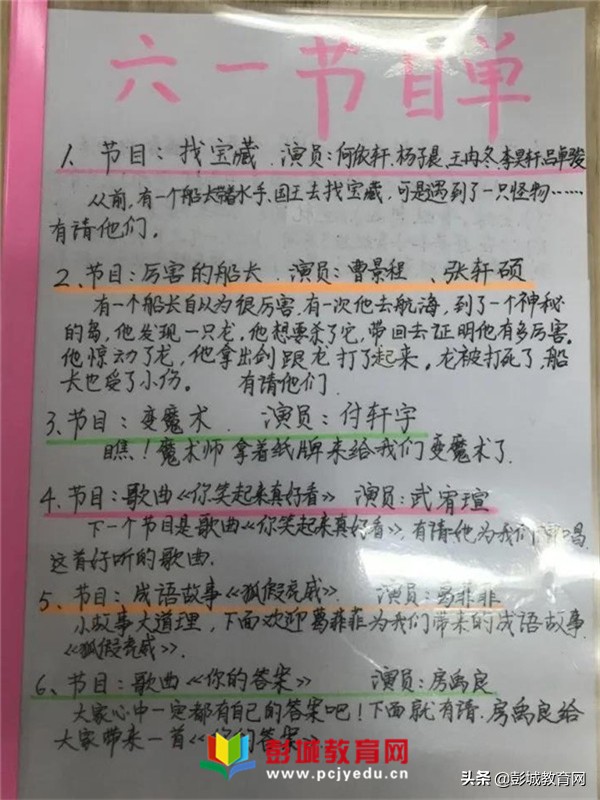 六一节目单
1、节目：找宝藏 演员：何依轩、杨子晨、王冉冬、李昊轩、吕卓骏
从前，有一个船长带着水手、国王去找宝藏，可是遇到了一只怪物……
有请他们。
2、节目：厉害的船长 演员：曹景程、张轩硕
有一个船长自以为很厉害，有一次他去航海，到了一个神秘
的岛，他发现一只龙，他想要杀了它，带回去证明他有多厉害。
他惊动了龙，他拿出剑跟龙打了起来。龙被打死了，船
长也受了小伤。 有请他们
3、节目：变魔术 演员：付轩宇
瞧！魔术师拿着纸牌来给我们变魔术了.
4、节目：歌曲《你笑起来真好看》 演员：武宥瑄
下一个节目是歌曲《你笑起来真好看》，有请他为我们演唱
这首好听的歌曲.
5、节目：成语故事《狐假虎威》 演员：葛菲菲
小故事大道理，下面欢迎葛菲菲为我们带来的成语故事
《狐假虎威》.
6、节目：歌曲《你的答案》 演员：房禹良
大家心中一定都有自己的答案吧！下面就有请房禹良给
大家带来一首《你的答案》
彭城教育网
www.pcjyedu.cn
头条 @彭城教育网